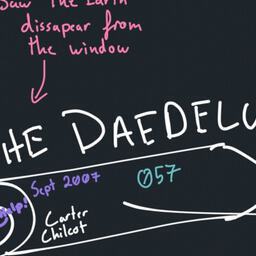 Saw The Earth
dissapear from
the window
HE DAEDELU
help!
Sept 2007
057
Carter
Chilcot